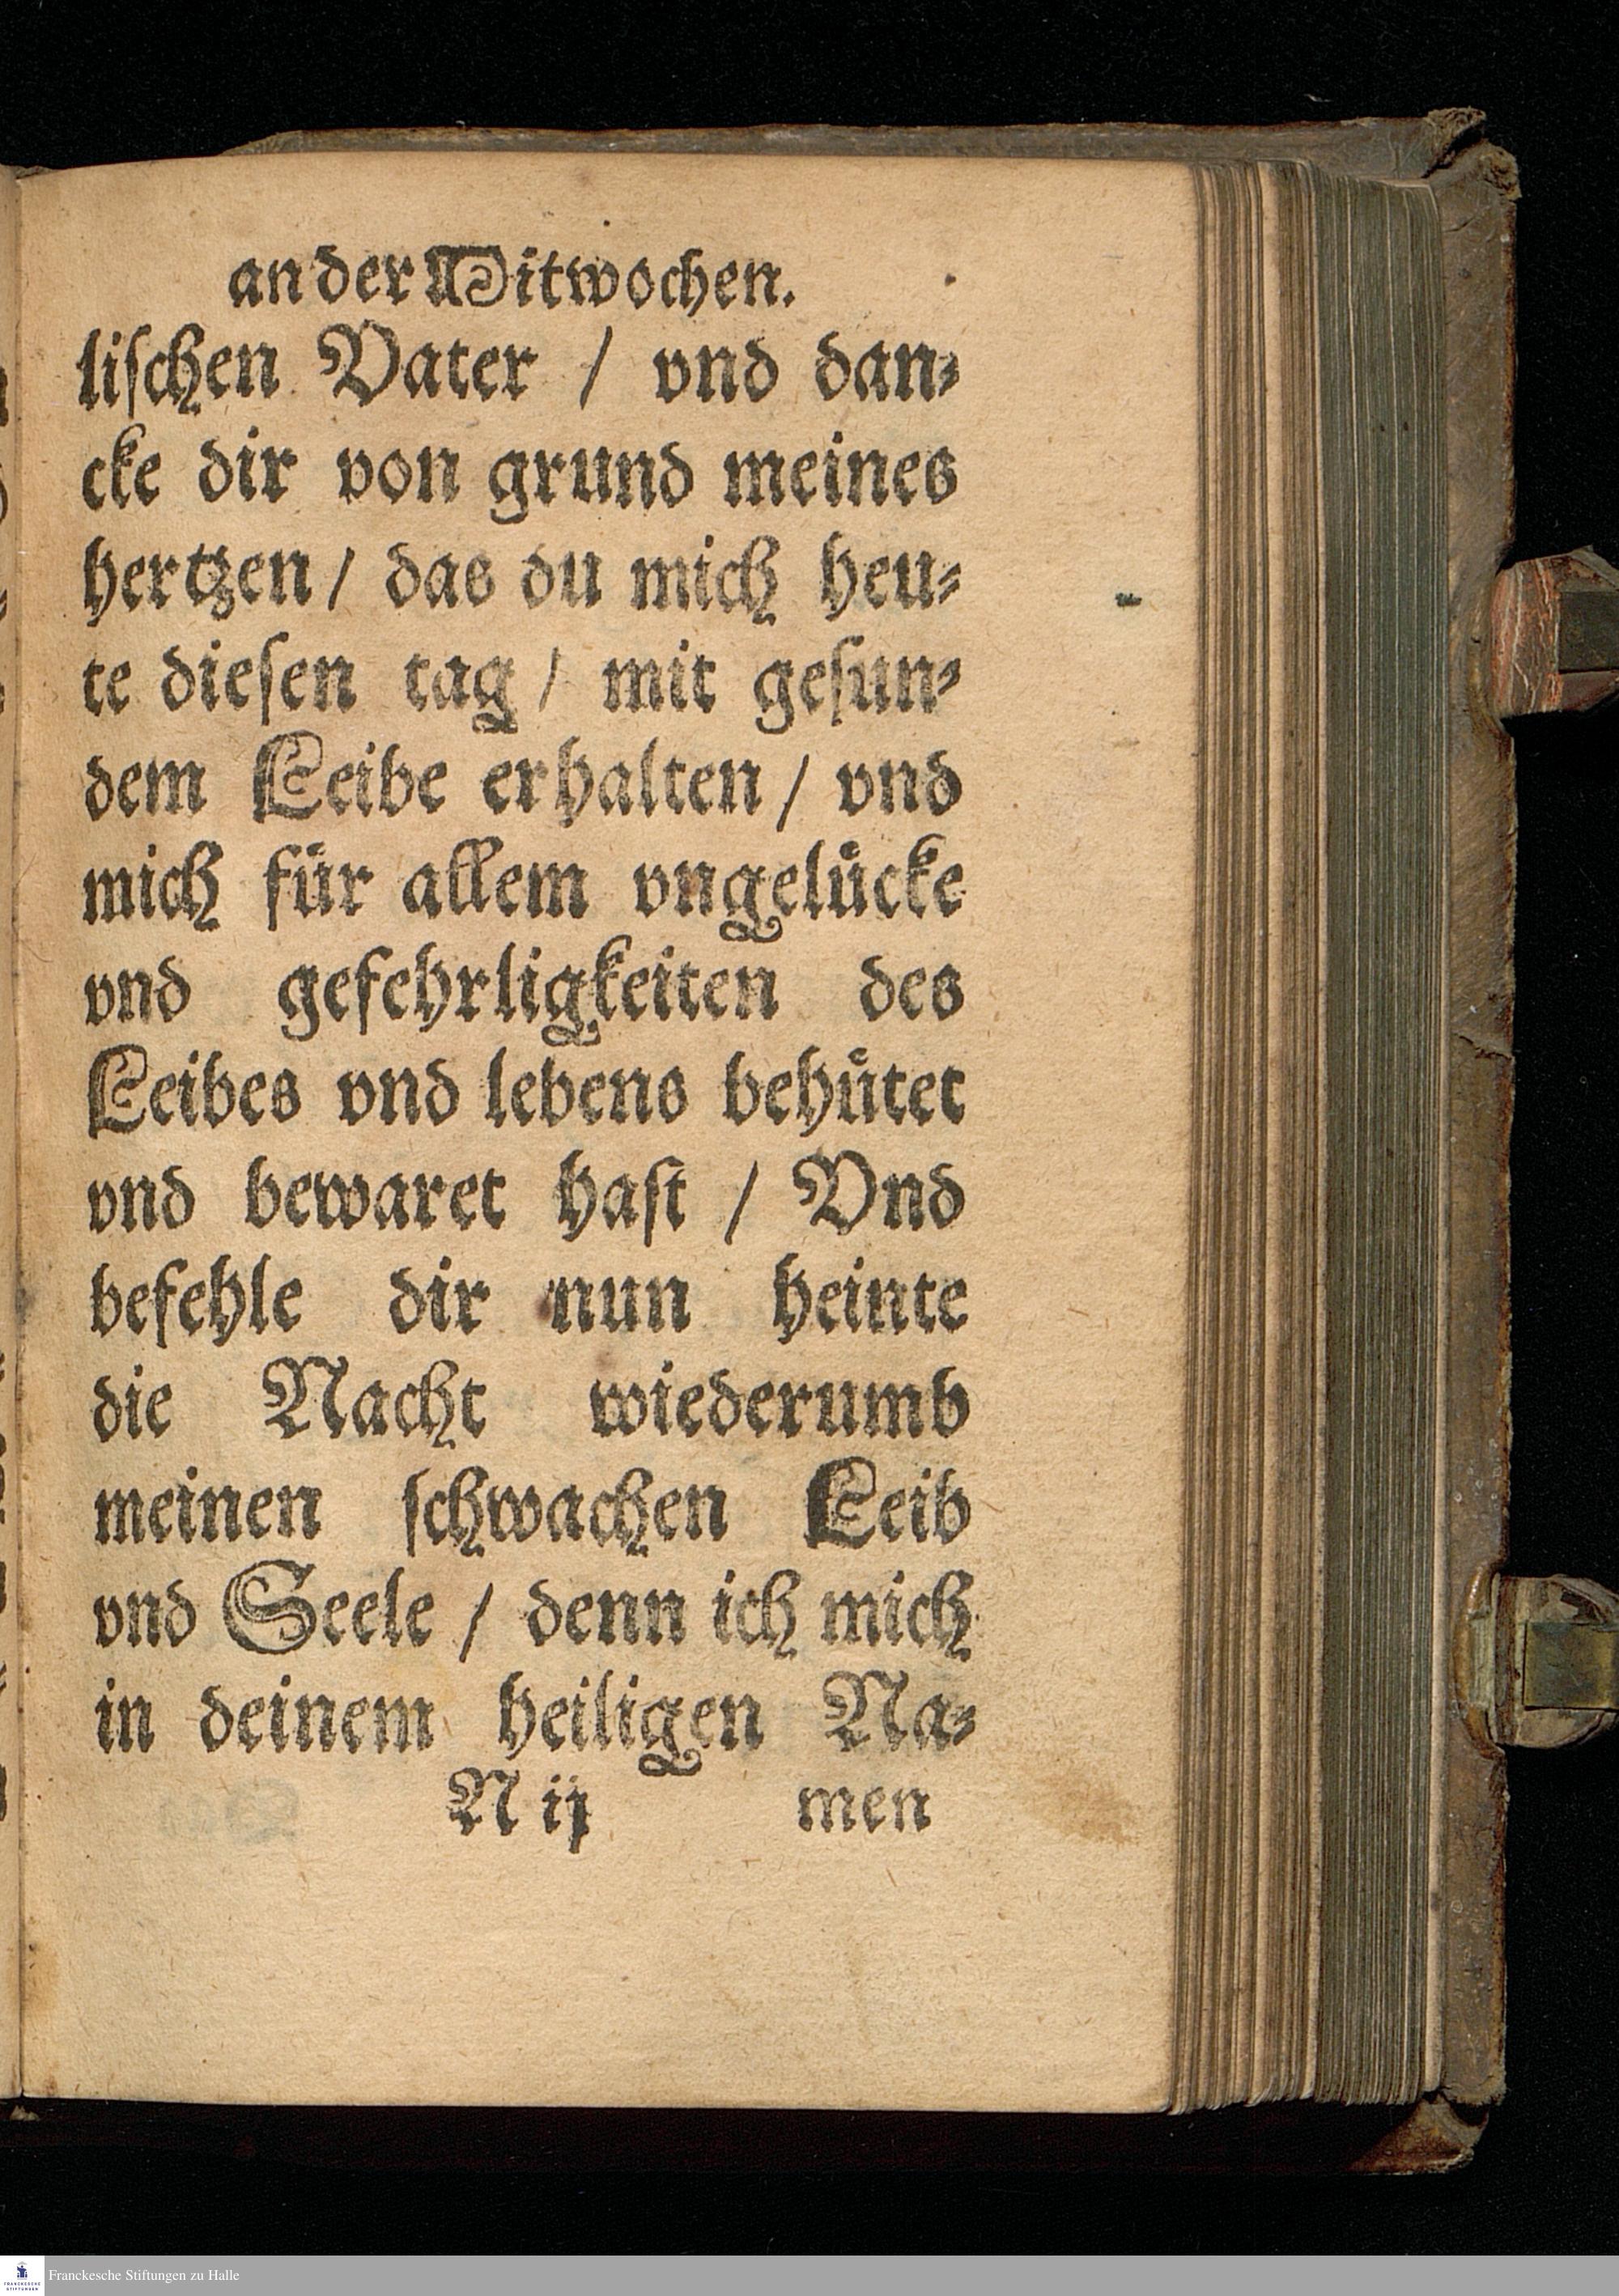 an der Mitwochen.
liſchen Vater / vnd dan⸗
cke dir von grund meines
hertzen / das du mich heu⸗
te dieſen tag / mit geſun⸗
dem Leibe erhalten / vnd
mich fuͤr allem vngeluͤcke
vnd gefehrligkeiten des
Leibes vnd lebens behuͤtet
vnd bewaret haſt / Vnd
befehle dir nun heinte
die Nacht wiederumb
meinen ſchwachen Leib
vnd Seele / denn ich mich
in deinem heiligen Na⸗
N ij men
Franckesche Stiftungen zu Halle
FRANCKESCHE
STIFTUNGEN